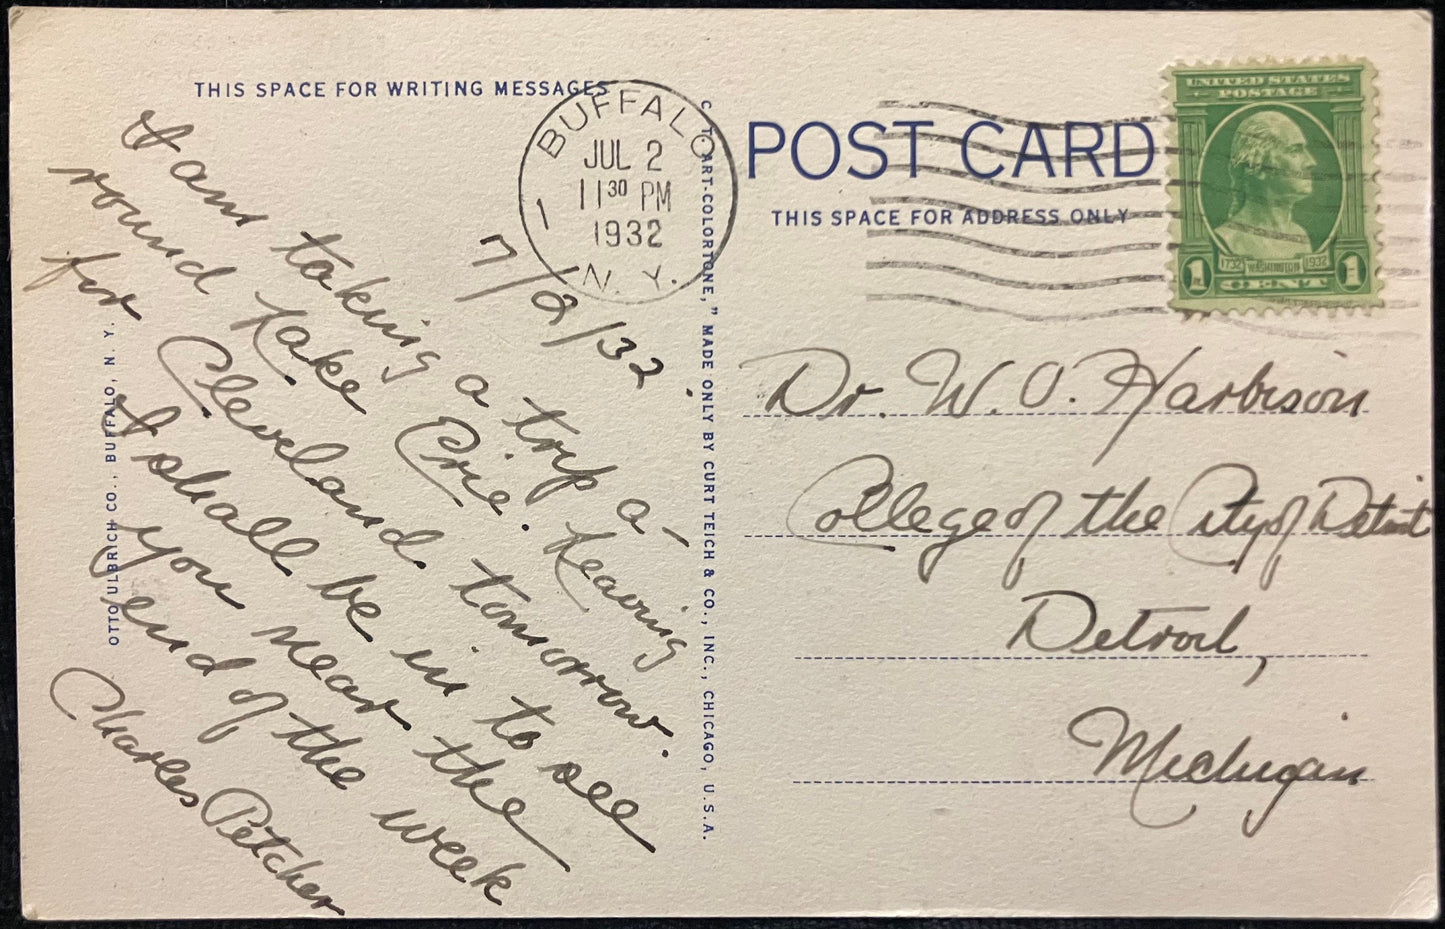 THIS SPACE FOR WRITING MESSAGES
BUFFALO
JUL 2
11 30 PM
1932
N. Y.
1
7/2/32.
I am taking a trip a-
round Lake Erie. Leaving
for Cleveland tomorrow.
I shall be in to see
you near the
end of the week
Charles Petcher
OTTO ULBRICH CO., BUFFALO, N. Y.
C. T. ART-COLORTONE," MADE ONLY BY CURT TEICH & CO., INC., CHICAGO, U.S.A.
POST CARD
THIS SPACE FOR ADDRESS ONLY
UNITED STATES
POSTAGE
1732 WASHINGTON 1932
1 CENT 1
Dr. W. O. Harbison
College of the City of Detroit
Detroit,
Michigan